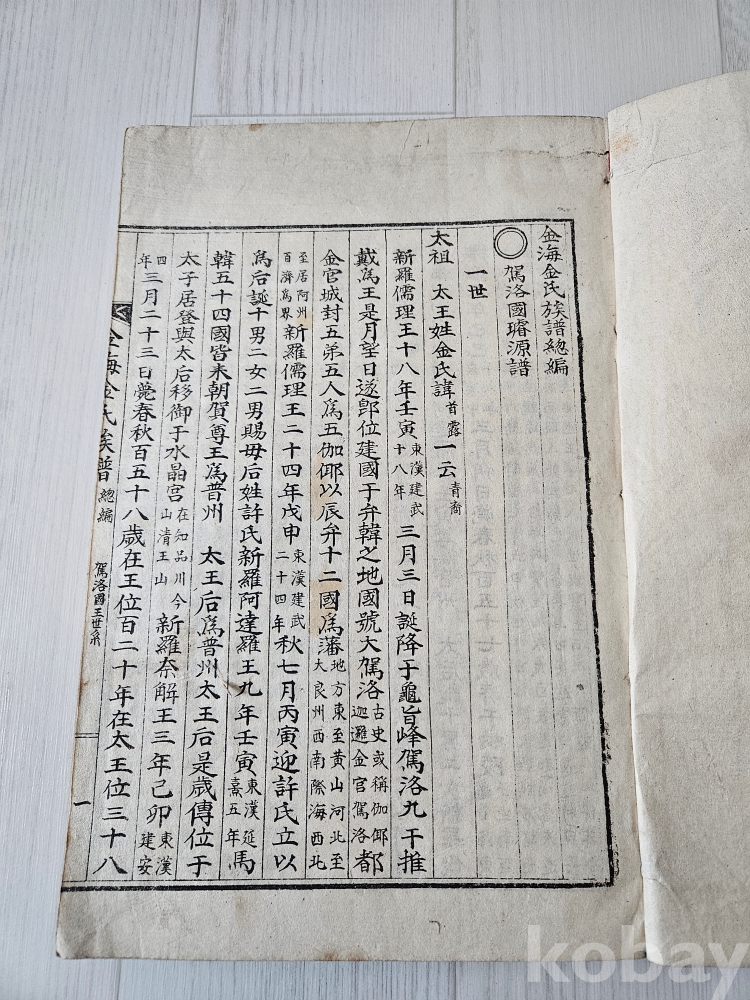 金海金氏族譜總編
駕洛國璿源譜
一世
太祖 太王姓金氏諱首露一云青裔
新羅儒理王十八年壬寅東漢建武十八年三月三日誕降于龜旨峰駕洛九干推
戴爲王是月望日遂卽位建國于弁韓之地國號大駕洛古史或稱伽倻迦邏金官駕洛都
金官城封五弟五人爲五伽倻以辰弁十二國爲藩地方東至黄山河北至大良州西南際海西北
至居阿州百濟爲界新羅儒理王二十四年戊申東漢建武二十四年秋七月丙寅迎許氏立以
爲后誕十男二女二男賜毋后姓許氏新羅阿達羅王九年壬寅東漢延熹五年馬
韓五十四國皆来朝賀尊王爲普州 太王后爲普州太王后是歲傳位于
太子居登與太后移御于水晶宮在知品川今山清王山新羅奈解王三年己卯東漢建安
四年三月二十三日薨春秋百五十八歲在王位百二十年在太王位三十八
金海金氏族譜 總編 駕洛國王世系 一
kobay